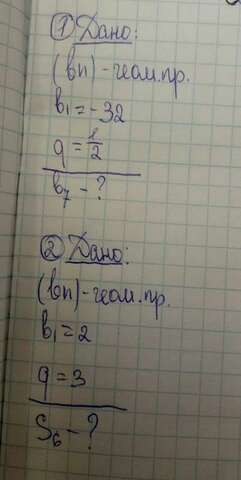 ① Дано:
(bn) - геом.пр.
b₁ = -32
q = 1/2
b₇ - ?
② Дано:
(bn) - геом.пр.
b₁ = 2
q = 3
S₆ - ?